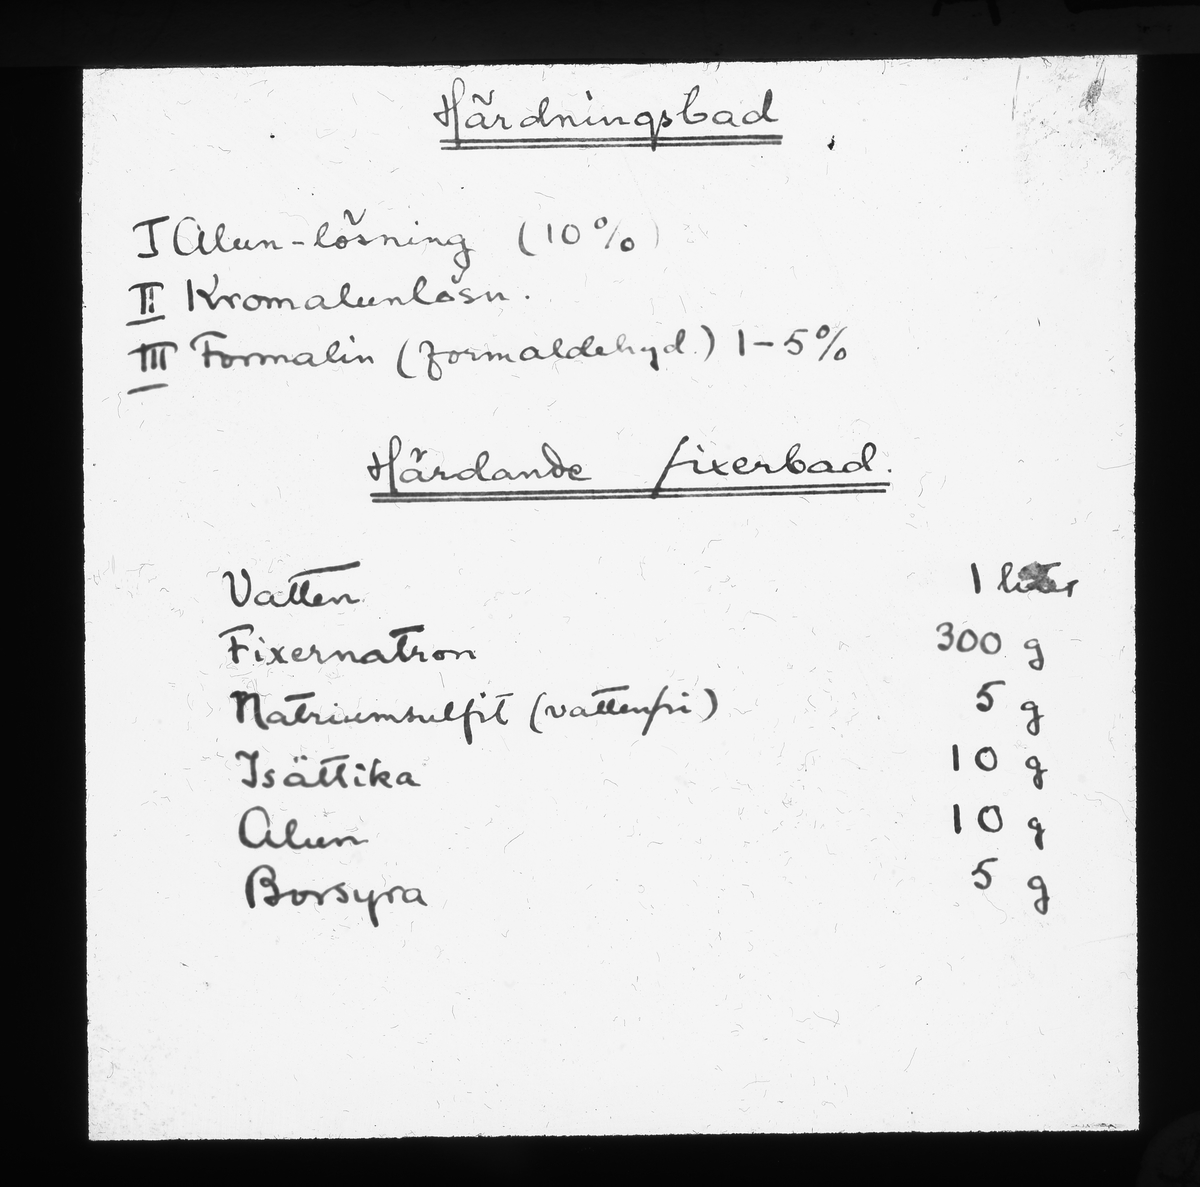 Härdningsbad
I Alun-lösning (10%)
II Kromalunlösn.
III Formalin (formaldehyd.) 1-5%
Härdande fixerbad.
Vatten 1 liter
Fixernatron 300 g
Natriumsulfit (vattenfri) 5 g
Isättika 10 g
Alun 10 g
Borsyra 5 g